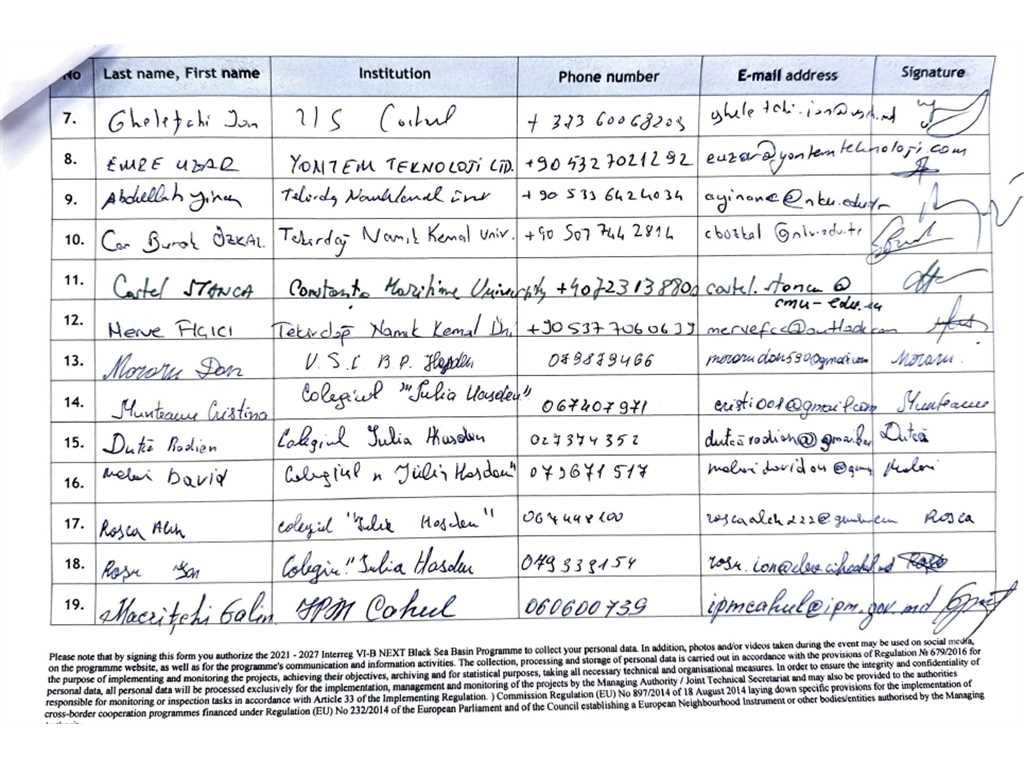 No Last name, First name Institution Phone number E-mail address Signature
7. Gheleţchi Ion Cahul + 373 60068203
8. EMRE UZAR YÖNTEM TEKNOLOJİ LTD. +90 532 7021292 euzar@yontemteknoloji.com
9. Abdullah Yinanç Tekirdağ Namık Kemal +90 533 6424034 ayinanc@nku.edu.tr
10. Can Burak ÖZKAL Tekirdağ Namık Kemal Univ. +90 507 744 2814 cbozkal@nku.edu.tr
11. Costel STANCA Constanta Maritime University costel.stanca@
cmu-edu.eu
12. Merve FIÇICI Tekirdağ Namık Kemal Üni +90 537 7060639
13. Moraru Dan B.P. Hasdeu 079879466 Moraru.
14. Munteanu Cristina Colegiul "Iulia Hasdeu" 067407971 cristi001@gmail.com Munteanu
15. Dutcă Rodion Colegiul Iulia Hasdeu 027374352 Dutcă
16. David Colegiul Iulia Hasdeu" 079671517
17. Rosca Colegiul "Iulia Hasdeu" Rosca
18. Rosu Ion "Iulia Hasdeu 079339154
19. Macriţchi Galin IPM Cahul 060600739 ipmcahul@ipm.gov.md
Please note that by signing this form you authorize the 2021 - 2027 Interreg VI-B NEXT Black Sea Basin Programme to collect your personal data. In addition, photos and/or videos taken during the event may be used on social media,
on the programme website, as well as for the programme's communication and information activities. The collection, processing and storage of personal data is carried out in accordance with the provisions of Regulation № 679/2016 for
the purpose of implementing and monitoring the projects, achieving their objectives, archiving and for statistical purposes, taking all necessary technical and organisational measures. In order to ensure the integrity and confidentiality of
personal data, all personal data will be processed exclusively for the implementation, management and monitoring of the projects by the Managing Authority / Joint Technical Secretariat and may also be provided to the authorities
responsible for monitoring or inspection tasks in accordance with Article 33 of the Implementing Regulation. ) Commission Regulation (EU) No 897/2014 of 18 August 2014 laying down specific provisions for the implementation of
cross-border cooperation programmes financed under Regulation (EU) No 232/2014 of the European Parliament and of the Council establishing a European Neighbourhood Instrument or other bodies/entities authorised by the Managing